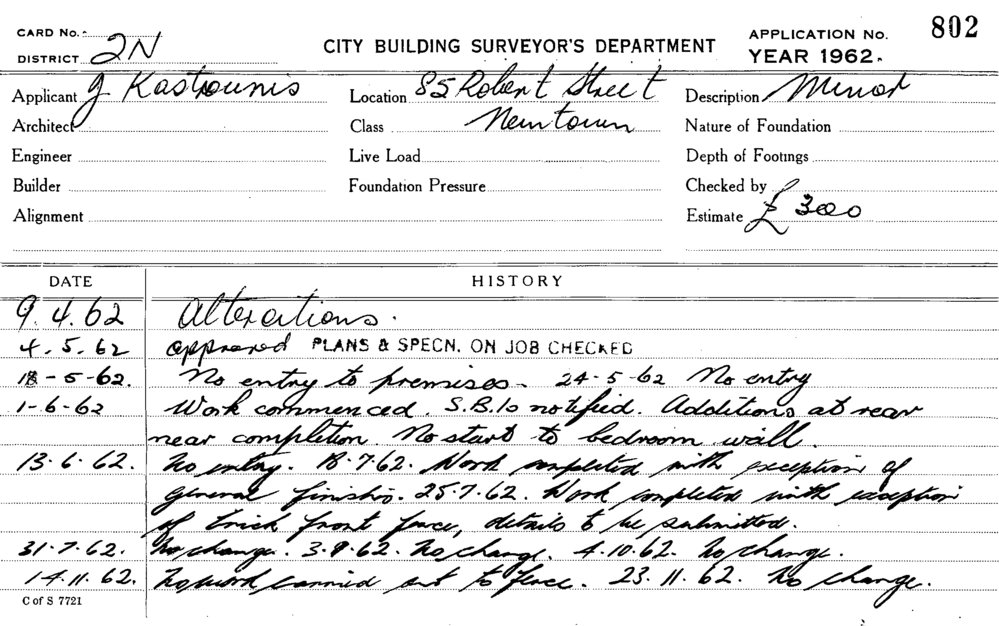 CARD No.- CITY BUILDING SURVEYOR'S DEPARTMENT APPLICATION No. 802
DISTRICT 2N YEAR 1962.
Applicant J Kastrounis Location 85 Robert Street Description Minor
Architect Class Newtown Nature of Foundation
Engineer Live Load Depth of Footings
Builder Foundation Pressure Checked by
Alignment Estimate £ 300
DATE HISTORY
9.4.62 Alterations.
4.5.62 approved PLANS & SPECN. ON JOB CHECKED
18-5-62. No entry to premises. 24-5-62 No entry
1-6-62 Work commenced. S.B.Is notified. Additions at rear
near completion. No start to bedroom wall.
13.6.62. No entry. 18.7.62. Work completed with exception of
general finishis. 25.7.62. Work completed with exception
of brick front fence, details to be submitted.
31.7.62. No change. 3.9.62. No change. 4.10.62. No change.
14.11.62. No work carried out to fence. 23.11.62. No change.
C of S 7721